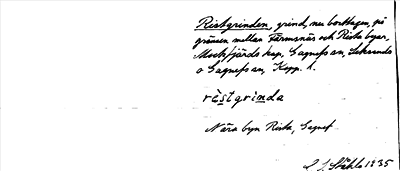 Ristgrinden, grind, nu borttagen, på
gränsen mellan Färmsnäs och Rista byar,
Mockfjärds kap, Gagnefs sn, Leksands
o Gagnefs sn, Kopp. l.
rèstgrinda
Nära byn Rista, Gagnef
Ståhl 1935